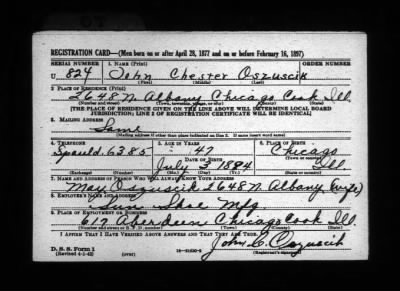 REGISTRATION CARD—(Men born on or after April 28, 1877 and on or before February 16, 1897)
SERIAL NUMBER 1. NAME (Print) ORDER NUMBER
U 824 John Chester Oszuscik
(First) (Middle) (Last)
2. PLACE OF RESIDENCE (Print)
2648 N. Albany Chicago Cook Ill.
(Number and street) (Town, township, village, or city) (County) (State)
[THE PLACE OF RESIDENCE GIVEN ON THE LINE ABOVE WILL DETERMINE LOCAL BOARD
JURISDICTION; LINE 2 OF REGISTRATION CERTIFICATE WILL BE IDENTICAL]
3. MAILING ADDRESS
Same
[Mailing address if other than place indicated on line 2. If same insert word same]
4. TELEPHONE 5. AGE IN YEARS 6. PLACE OF BIRTH
Spauld. 6385 47 Chicago
DATE OF BIRTH (Town or county)
July 3 1894 Ill
(Exchange) (Number) (Mo.) (Day) (Yr.) (State or country)
7. NAME AND ADDRESS OF PERSON WHO WILL ALWAYS KNOW YOUR ADDRESS
May Oszuscik 2648 N. Albany (wife)
8. EMPLOYER'S NAME AND ADDRESS
Sun Shoe Mfg
9. PLACE OF EMPLOYMENT OR BUSINESS
617 Aberdeen Chicago Cook Ill.
(Number and street or R. F. D. number) (Town) (County) (State)
I AFFIRM THAT I HAVE VERIFIED ABOVE ANSWERS AND THAT THEY ARE TRUE.
John C. Oszuscik
D. S. S. Form 1
(Revised 4-1-42) (over) (Registrant's signature)